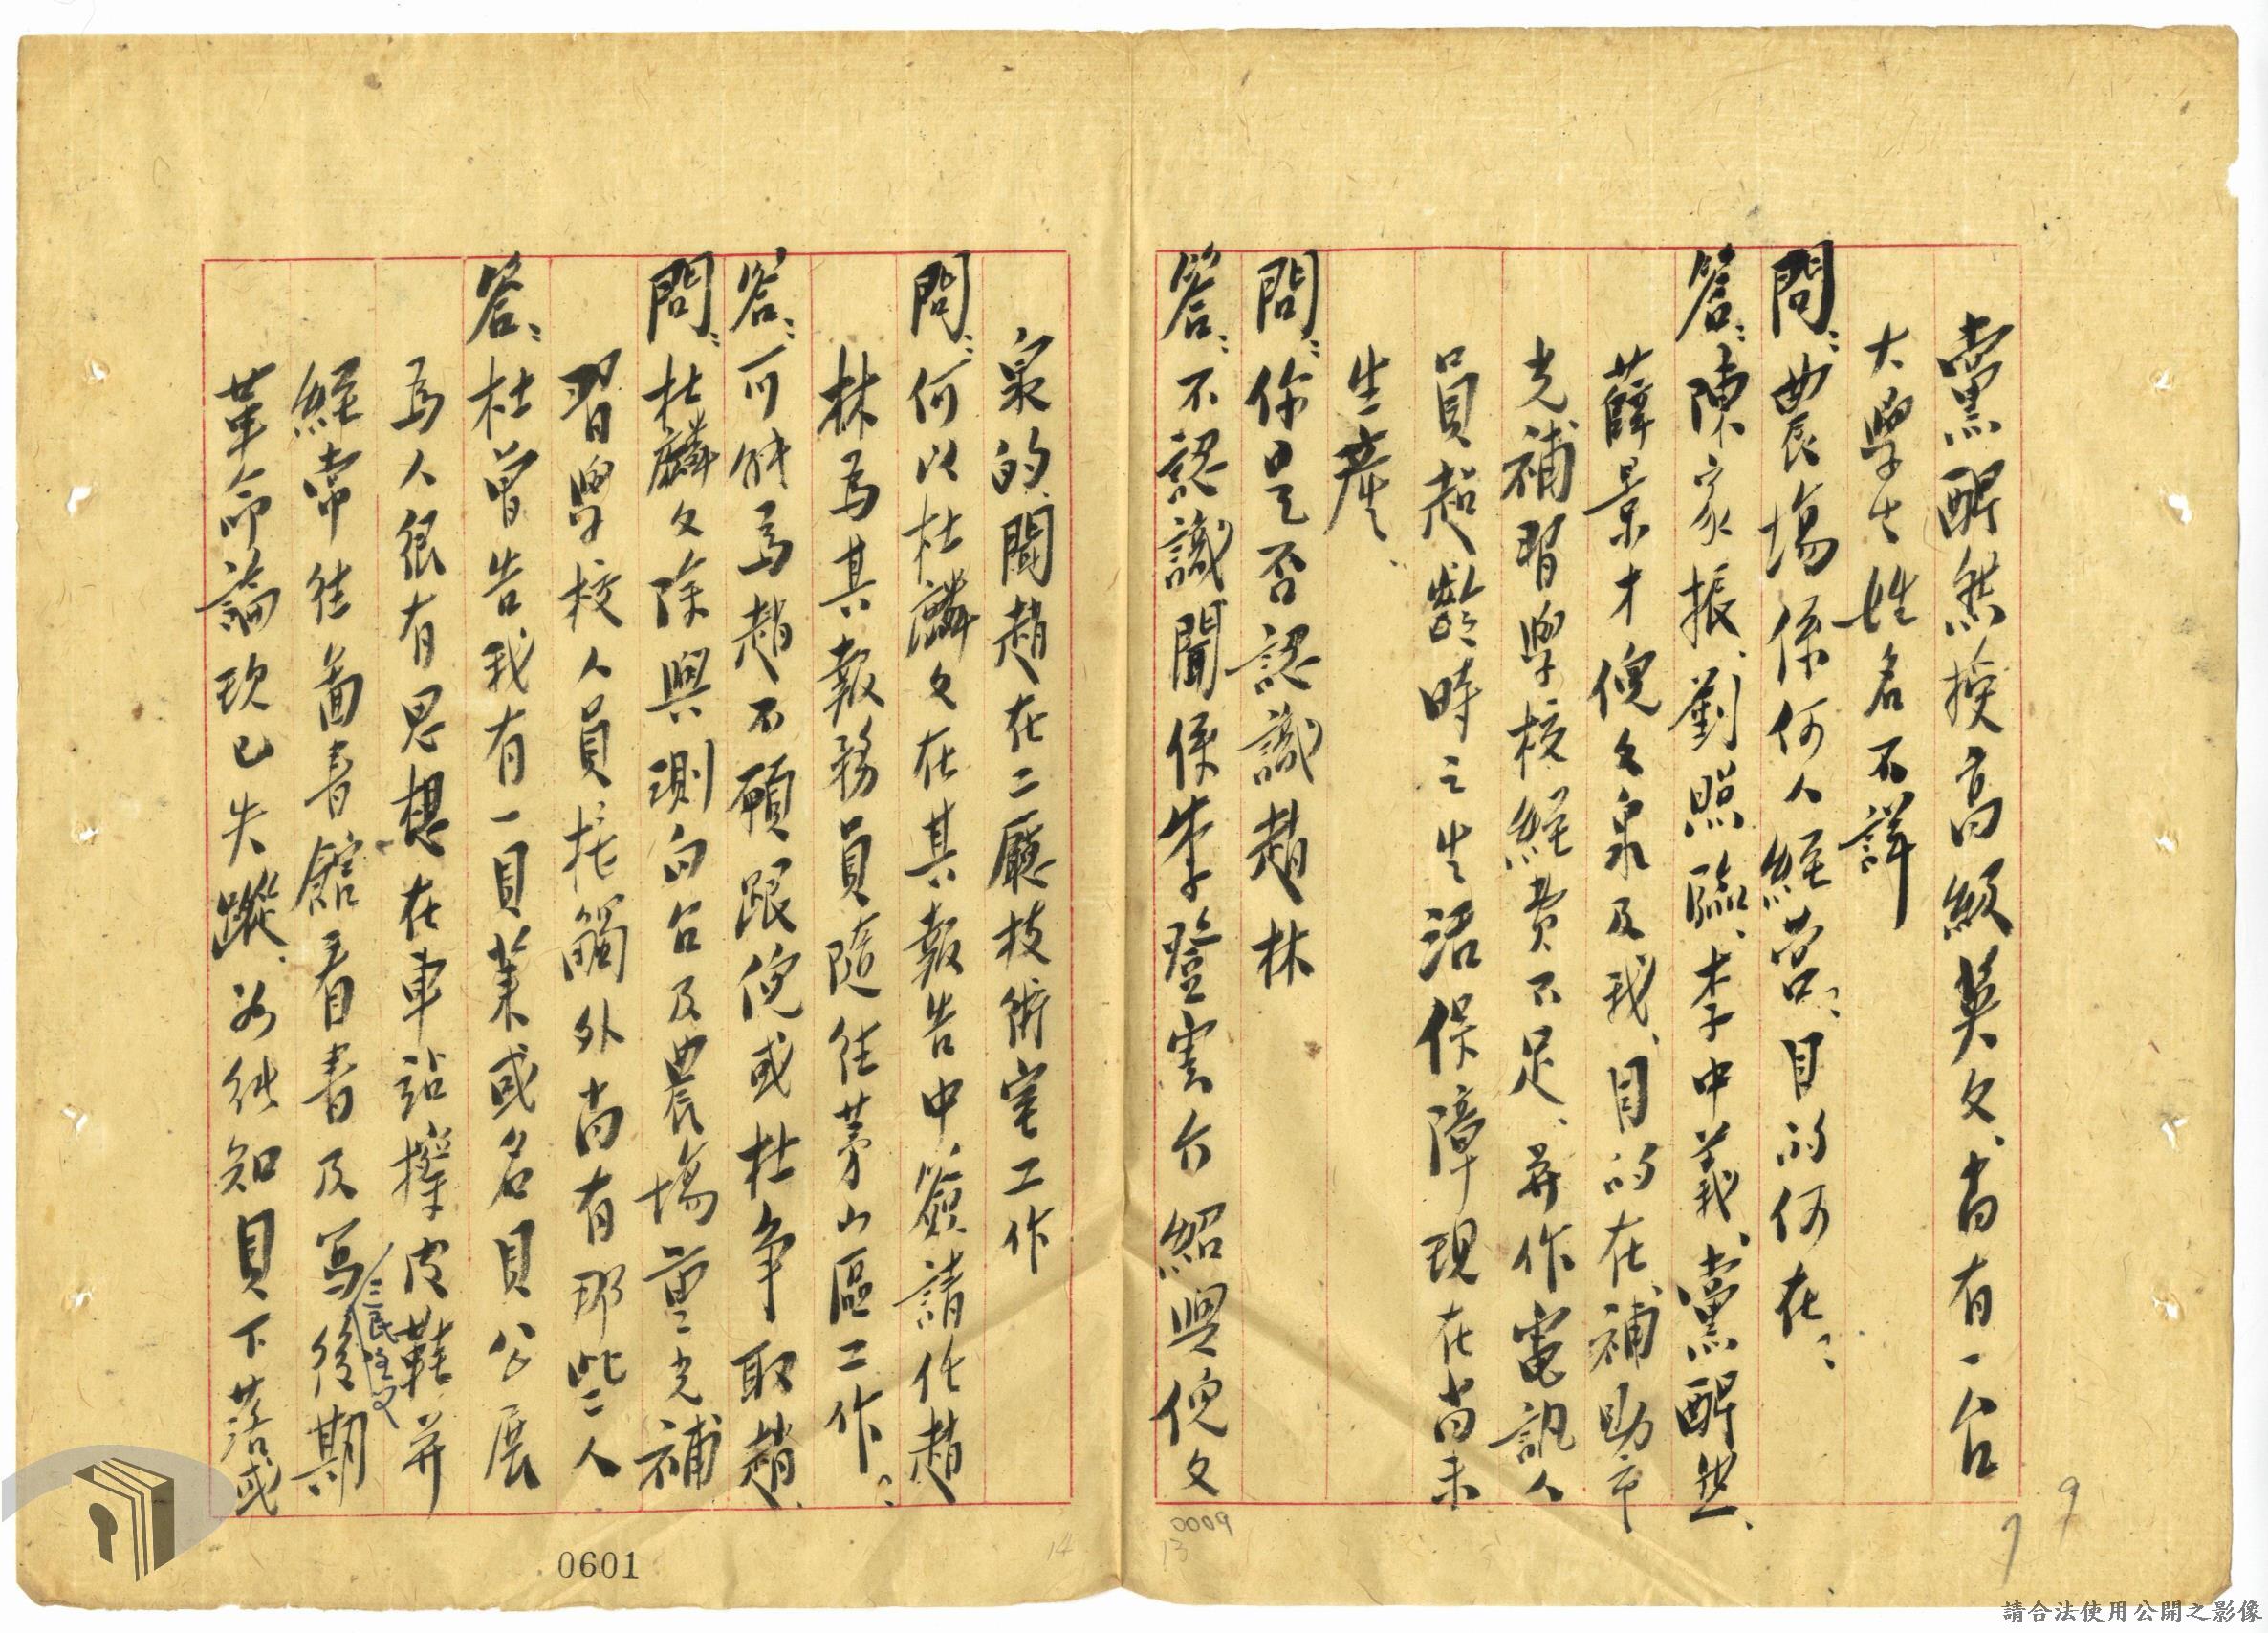 黨醒然授高級英文、尚有一台
大學生姓名不詳
問：農場係何人經营：目的何在：
答：陳家振、劉照臨、李中義、黨醒然、
薛景才倪文泉及我、目的在補助市
光補習學校經費不足、并作電訊人
員超齡時之生活保障現在尚未
生產、
問：你是否認識趙林
答：不認識聞係李登雲介紹與倪文
泉的、聞趙在二廳技術室工作
問：何以杜麟文在其報告中簽請作趙
林為其報務員隨往茅山區工作：
答：可能為趙不願跟倪或杜争取趙、
問：杜麟文除與測向台及農場重光補
習學校人員接觸外尚有那些人
答：杜曾告我有一貝業或名貝公展
為人很有思想在車站擦皮鞋并
經常往啚書館看書及写後期
三民主义
革命論現已失蹤、如能知貝下落或
0601
0009
13
14
9
請合法使用公開之影像